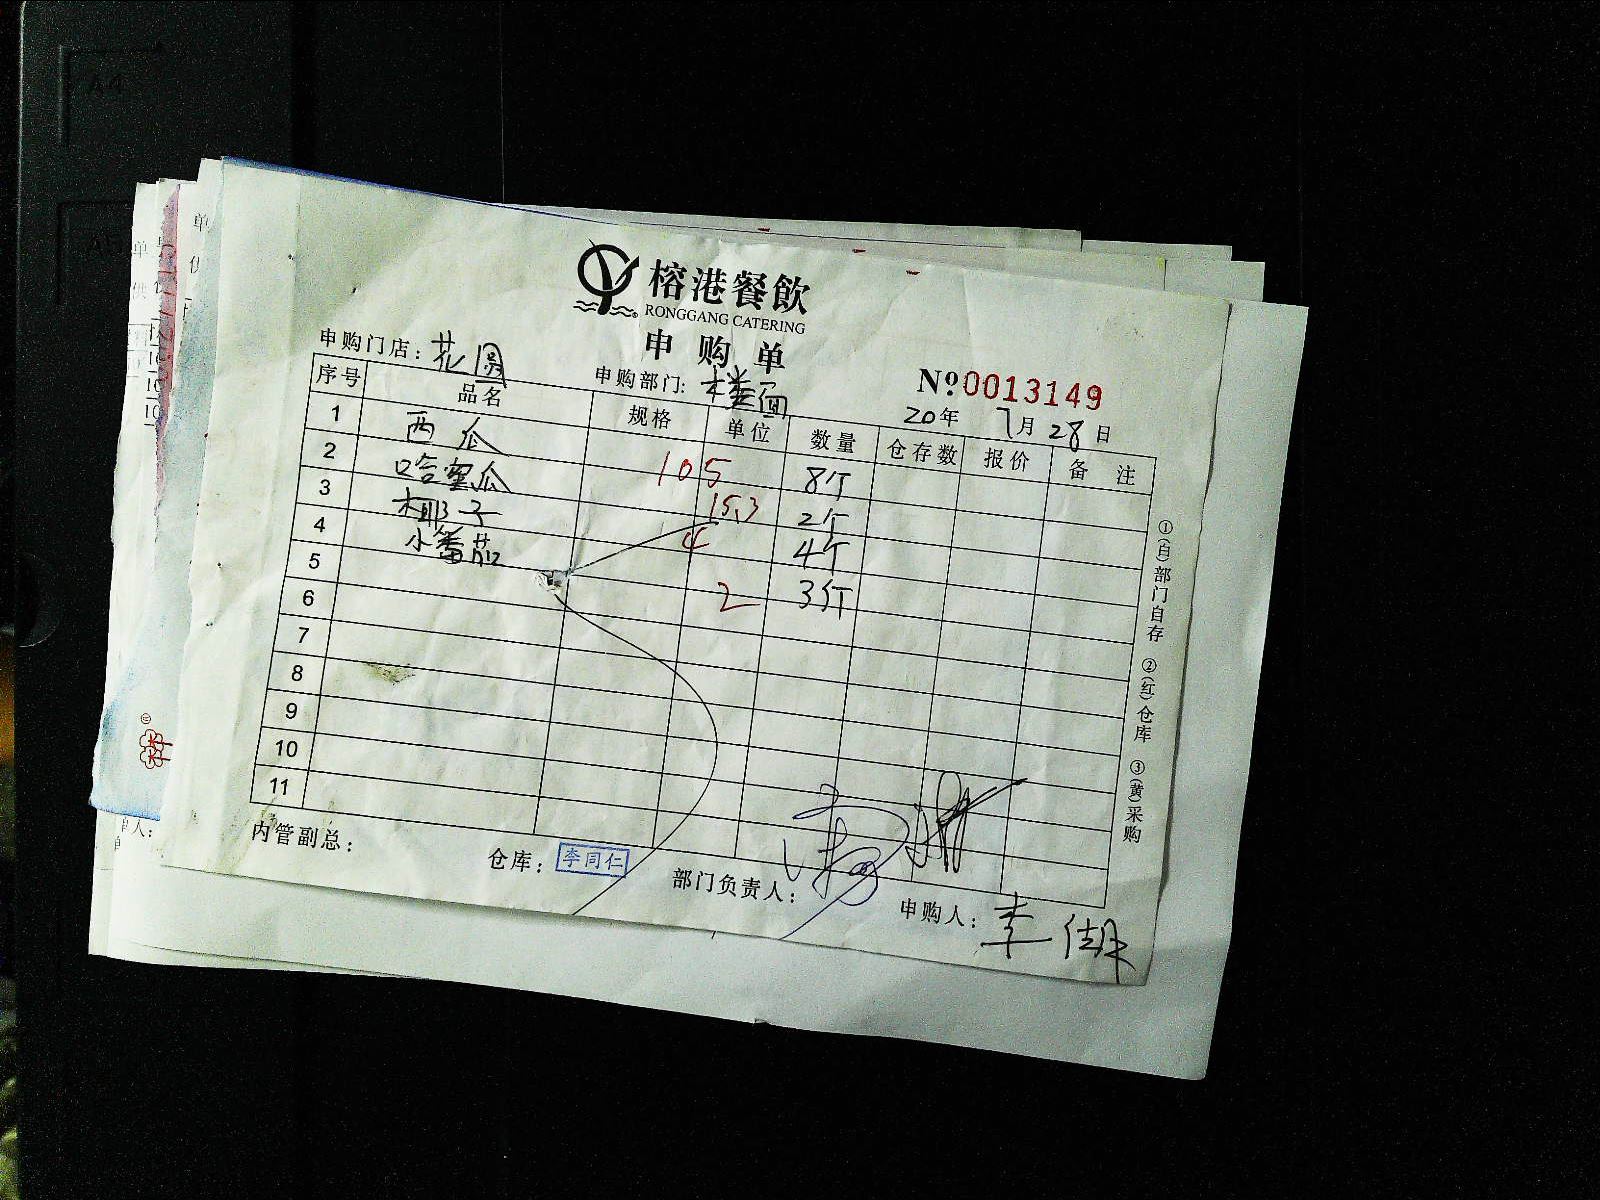 榕港餐飲
RONGGANG CATERING
申购单
申购门店：花园 申购部门：楼面 №0013149
20年 7月 28日
序号 品名 规格 单位 数量 仓存数 报价 备注
1 西瓜 105 8个
2 哈密瓜 15.3 2个
3 椰子 4 4个
4 小番茄 2 3斤
5
6
7
8
9
10
11
①(白)部门自存 ②(红)仓库 ③(黄)采购
内管副总： 仓库：李同仁 部门负责人： 申购人：李